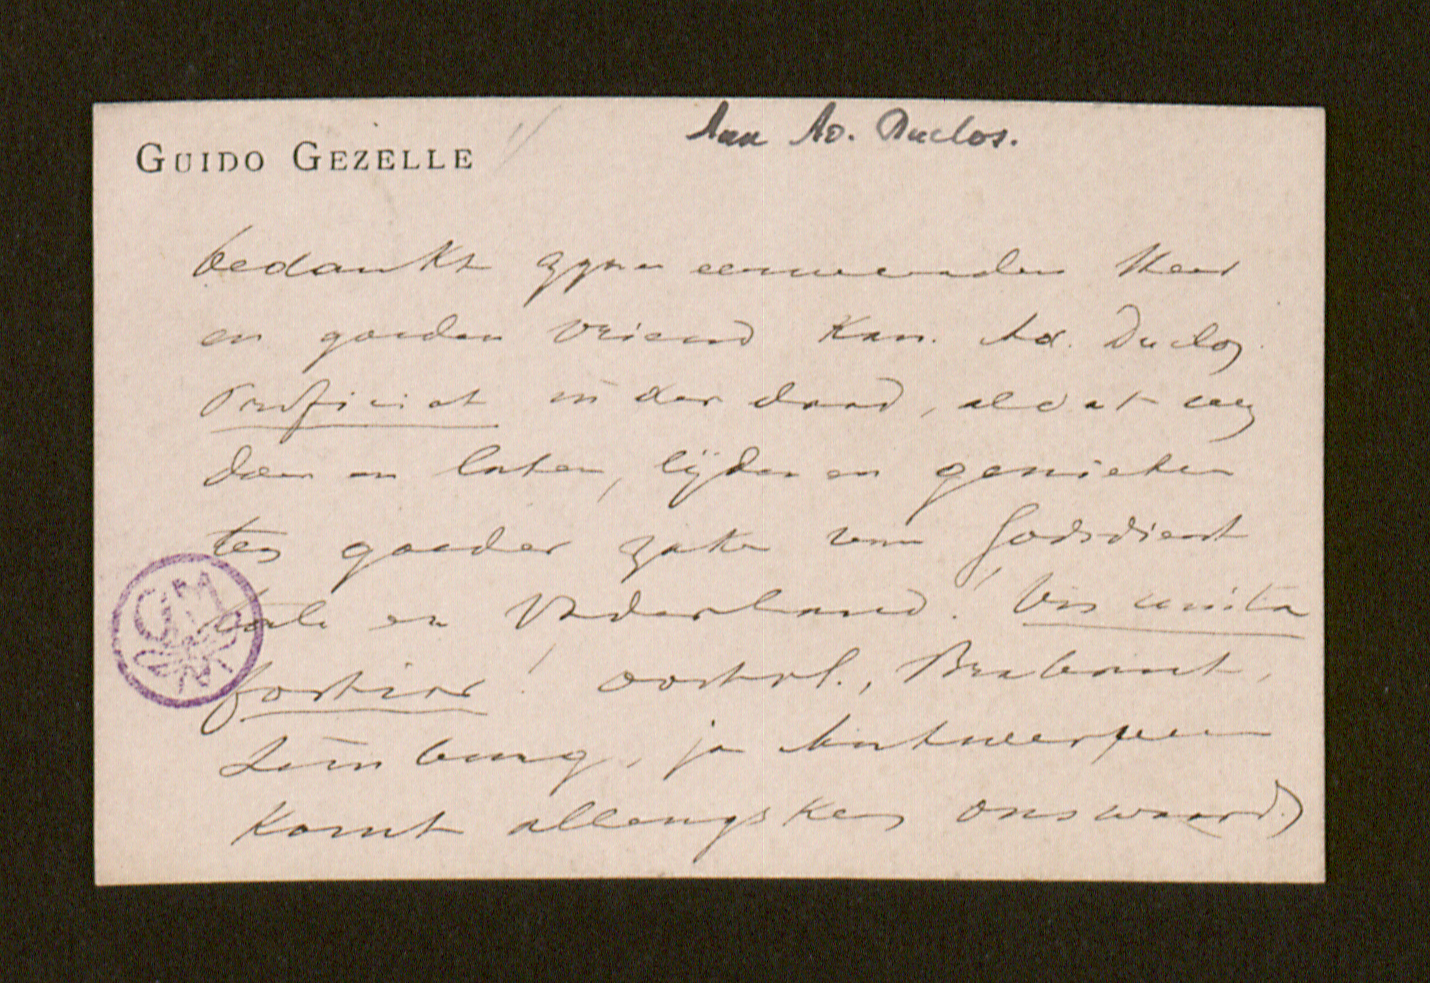 Aan Ad. Duclos.
GUIDO GEZELLE
bedankt zynen eerweerden Heer
en goeden vriend Kan. Ad. Duclos.
Proficiat in der daad, al dat wy
doen en laten, lijden en genieten
ten goeder zake van Godsdienst
tale en Vaderland! Vis unita
fortior! oostvl., Brabant,
Limburg, ja Antwerpen
komt allengskens onswaard)